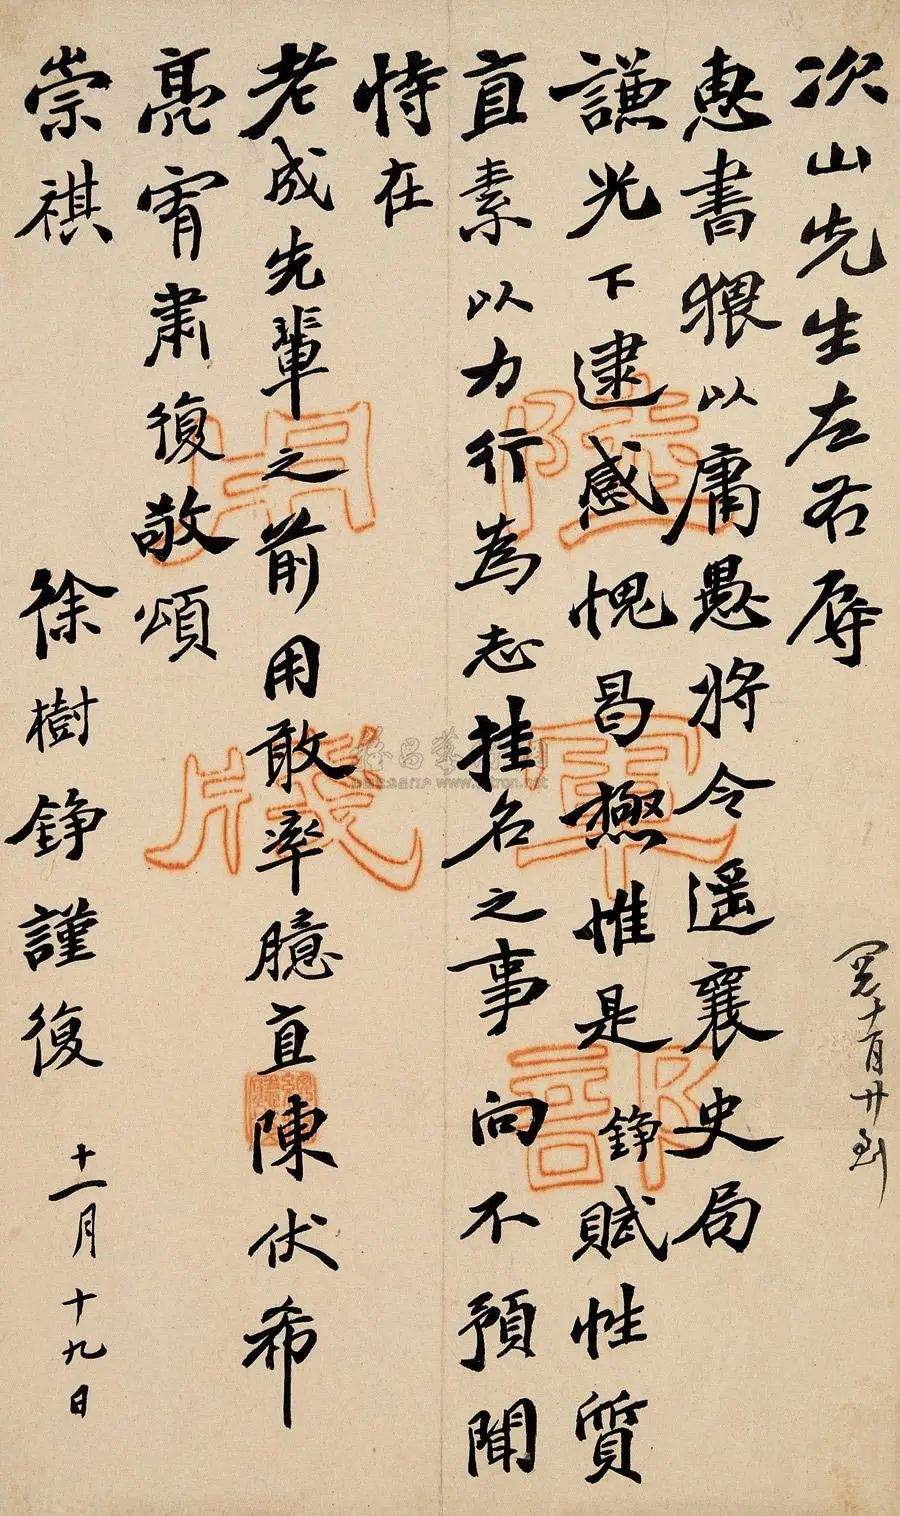 次山先生左右辱
惠書猥以庸愚將令遥襄史局
謙光下逮感愧曷極惟是錚賦性質
直素以力行為志挂名之事向不預聞
恃在
老成先輩之前用敢率臆直陳伏希
亮宥肅復敬頌
崇祺
徐樹錚謹復
十一月十九日
十一月廿到
陸軍部
用牋